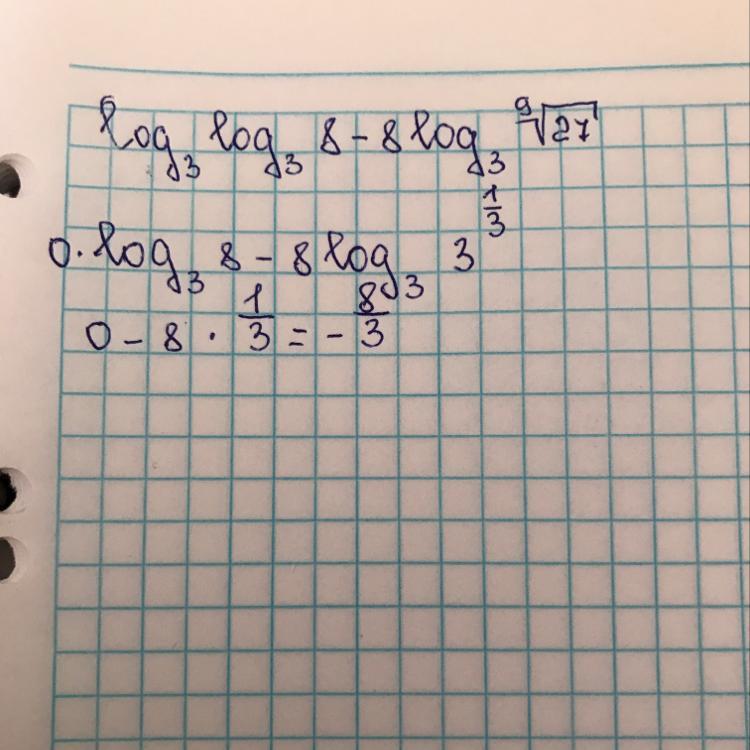 log₃ log₃ 8 - 8 log₃ ⁹√27
0 · log₃ 8 - 8 log₃ 3^(1/3)
0 - 8 · 1/3 = - 8/3